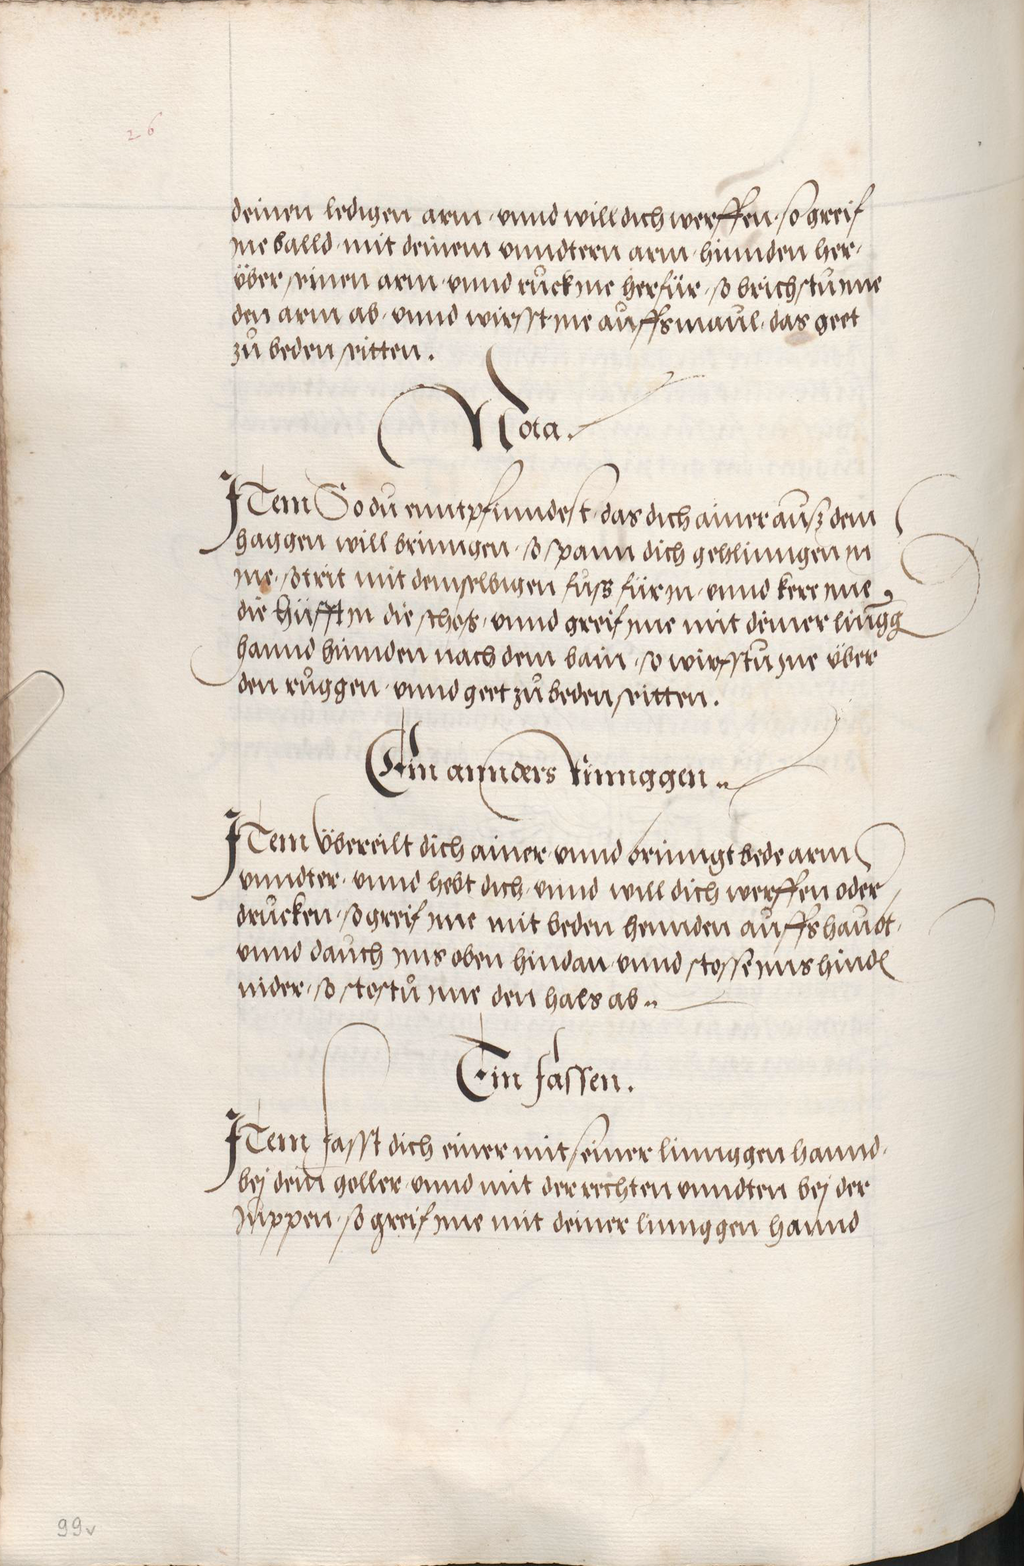 26
deinen ledigen arm · vnnd will dich werffen · so greif
yne balld · mit deinem vnndtern arm · hinnden her-
über seinen arm · vnnd růck yne herfür · so brichstů yne
den arm ab · vnnd wirsst yne aůffs maůl · das geet
zů beden seitten .
Nota .
Item So dů enntpfinndest · das dich ainer aůß dem
haggen will bringen · so spann dich gehlinngen in
yne · so trit mit demselbigen fůss für in · vnnd kere yne
die hüfft in die schos · vnnd greif yne mit deiner lingg
hannd hinnden nach dem bain · so wirfstů yne über
den růggen · vnnd geet zů beden seitten .
Ein annders Rinnggen ..
Item übereilt dich ainer · vnnd bringt bede arm
vnndter · vnnd hebt dich · vnnd will dich werffen oder
drůcken · so greif yne mit beden hennden aůffs haůbt ·
vnnd daůch yms oben hindan · vnnd stosse yms hindl
nider · so stostů yne den hals ab ..
Ein fassen .
Item fasst dich einer mit seiner linnggen hannd ·
bej dein goller · vnnd mit der rechten vnndten bej der
yuppen · so greif yne mit deiner linnggen hannd
99v